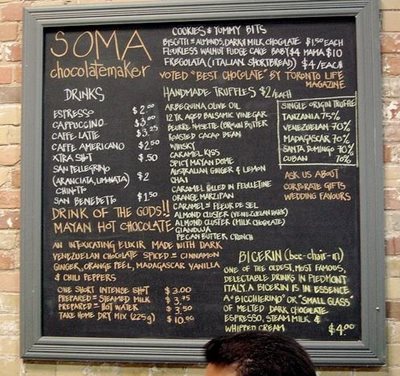 SOMA
chocolatemaker
DRINKS
ESPRESSO $2.00
CAPPUCCINO $3.00
CAFFE LATTE $3.25
CAFFE AMERICANO $2.50
XTRA SHOT $.50
SAN PELLEGRINO
(ARANCIATA, LIMONATA) $2
CHINOTTO
SAN BENEDETTO $1.50
DRINK OF THE GODS!!
MAYAN HOT CHOCOLATE
AN INTOXICATING ELIXIR MADE WITH DARK
VENEZUELAN CHOCOLATE SPICED = CINNAMON
GINGER, ORANGE PEEL, MADAGASCAR VANILLA
& CHILI PEPPERS
ONE SHORT INTENSE SHOT $3.00
PREPARED = STEAMED MILK $3.75
PREPARED = HOT WATER $3.50
TAKE HOME DRY MIX (225g) $10.50
COOKIES & YUMMY BITS
BISCOTTI = ALMONDS, DARK & MILK CHOCOLATE $1.50 EACH
FLOURLESS WALNUT FUDGE CAKE BABY $4 MAMA $10
FREGOLATA (ITALIAN SHORTBREAD) $4/EACH
VOTED "BEST CHOCOLATE" BY TORONTO LIFE
MAGAZINE
HANDMADE TRUFFLES $2/EACH
ARBEQUINA OLIVE OIL
12 YR AGED BALSAMIC VINEGAR
BEURRE NOISETTE (BROWN BUTTER)
ROASTED CACAO BEAN
WHISKY
CARAMEL KISS
SPICY MAYAN DOME
AUSTRALIAN GINGER & LEMON
CHAI
CARAMEL FILLED IN FEUILLETINE
ORANGE MARZIPAN
CARAMEL = FLEUR DE SEL
ALMOND CLUSTER (VENEZUELAN DARK)
ALMOND CLUSTER (MILK CHOCOLATE)
GIANDUJA
PECAN BUTTER CRUNCH
SINGLE ORIGIN TRUFFLE
TANZANIA 75%
VENEZUELAN 70%
MADAGASCAR 70%
SANTA DOMINGO 70%
CUBAN 70%
ASK US ABOUT
CORPORATE GIFTS
WEDDING FAVOURS
BICERIN (bee-chair-in)
ONE OF THE OLDEST, MOST FAMOUS,
DELECTABLE DRINKS IN PIEDMONT
ITALY. A BICERIN IS IN ESSENCE
A "BICCHIERINO" OR "SMALL GLASS"
OF MELTED DARK CHOCOLATE
ESPRESSO, STEAM MILK &
WHIPPED CREAM $4.00